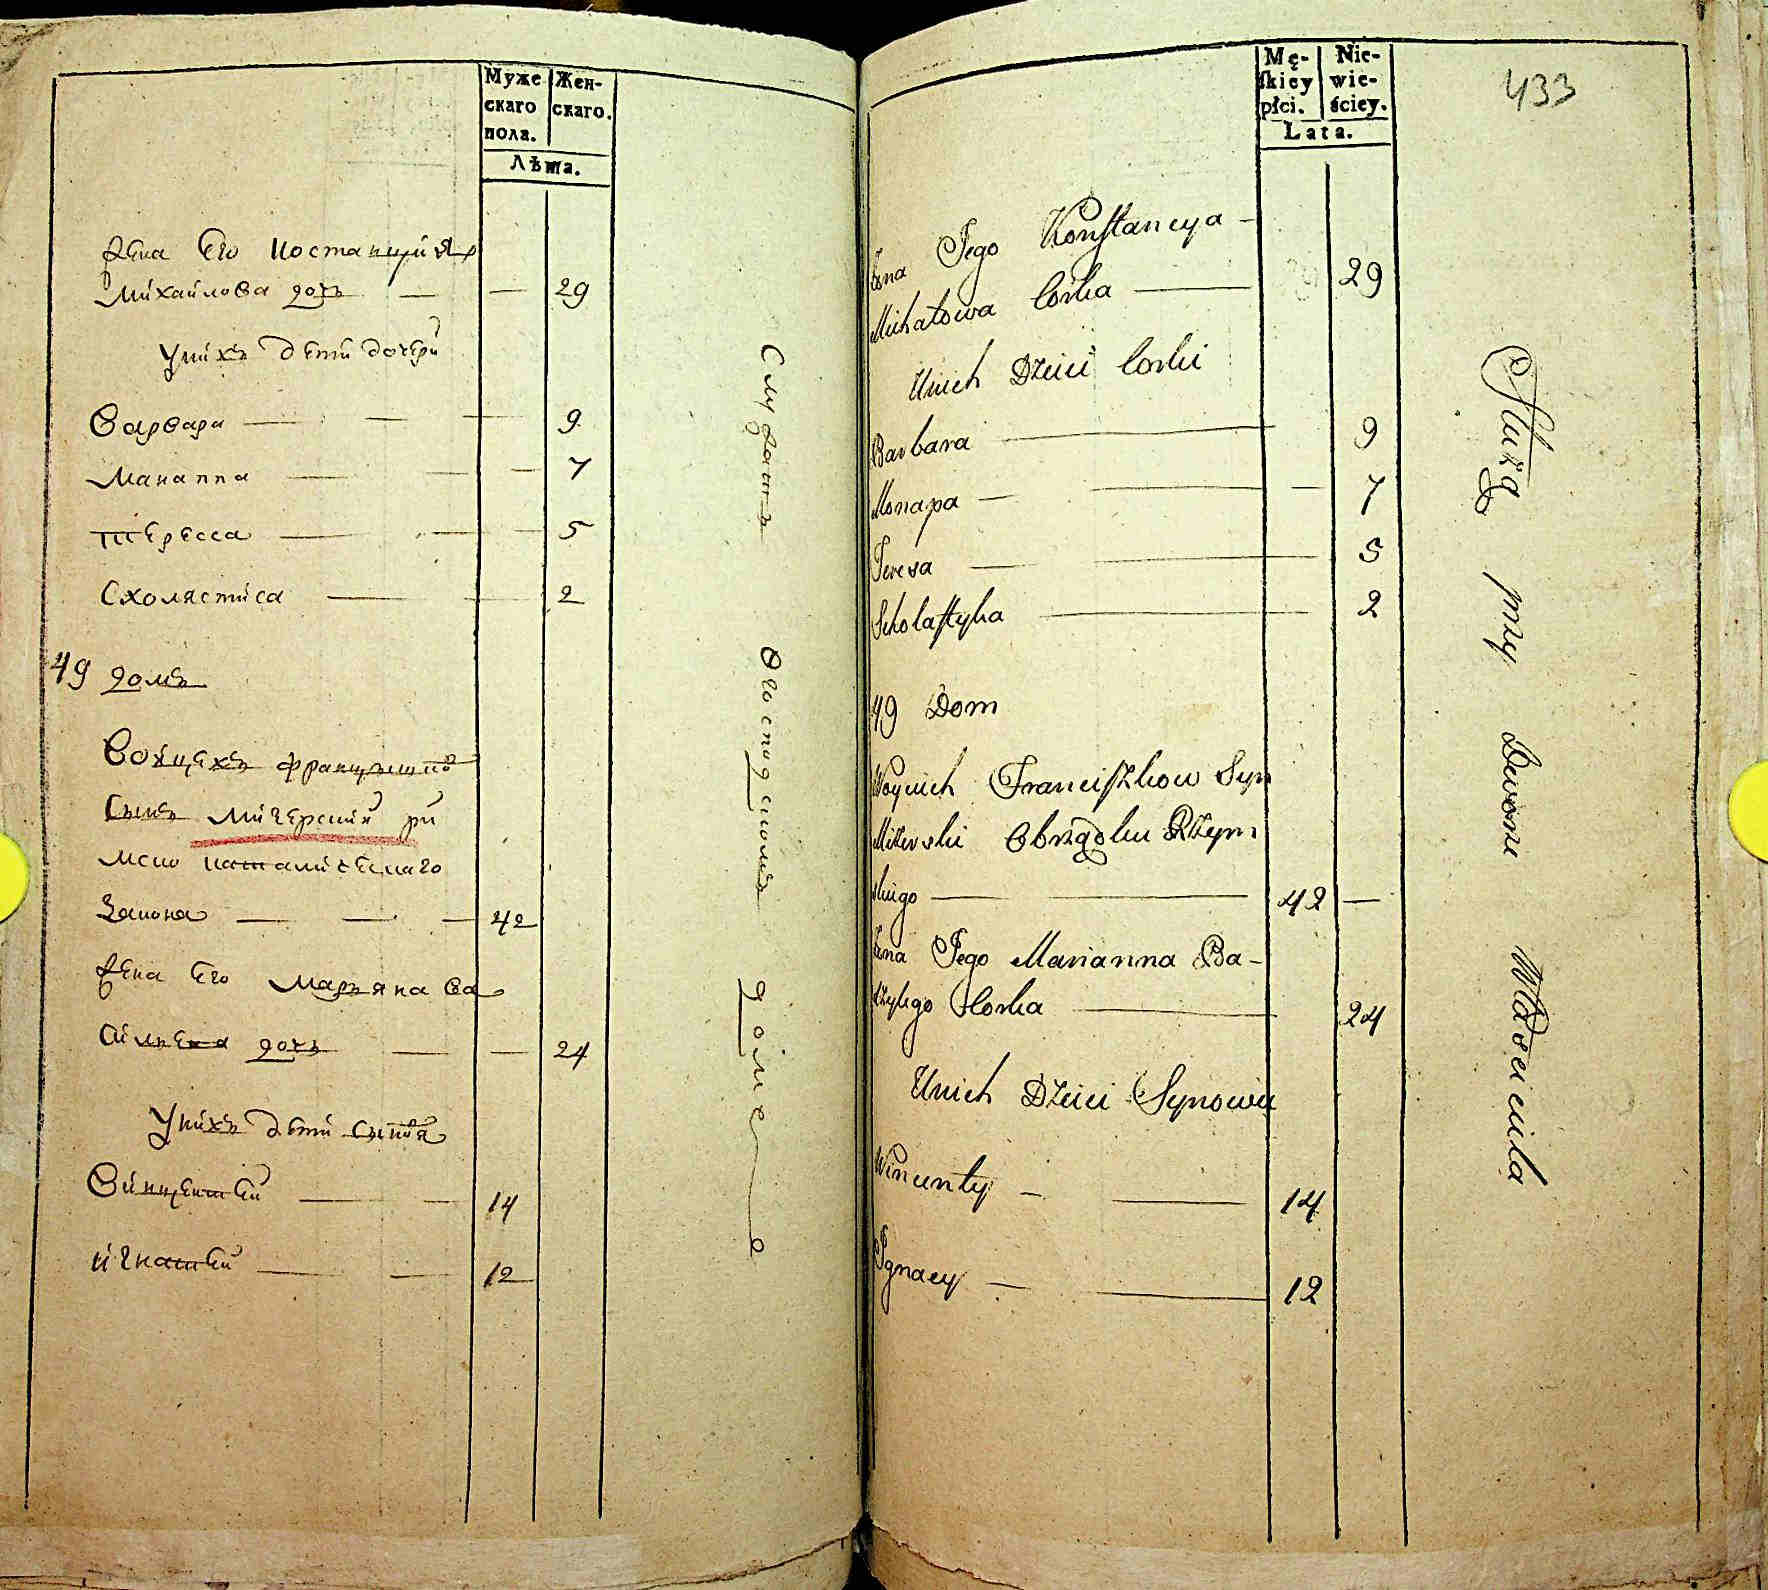 Муже
скаго
пола.
Жен-
скаго.
Лѣта.
жена Его Костанцыя
Михайлова дочь — — 29
Унихъ дети дочери
Варвара — — — 9
Марианна — — — 7
Тересса — — — 5
Схолястика — — 2
49 домъ
Войцехъ францышковъ
Сынъ Мицерский ри
мско католическаго
Закона — — — 42
жена Его Марьяна Ва
дочь — — 24
Унихъ дети сыновя
Винцентей — — 14
Игнатей — — 12
Служатъ
Господскомъ
доме
Mę-
ſkiey
płci.
Nie-
wie-
ściey.
Lata.
433
Żona Jego Konſtancya -
Michałowa Corka — 29
Unich Dzieci Corki
Barbara — 9
— — 7
Teresa — — 5
Scholaſtyka — 2
49 Dom
Woyciech Franciſzkow Syn
Micerski Obrządku Rzym
skiego — — 42 —
Żona Jego Marianna Ba-
Corka — 24
Unich Dzieci Synowie
Wincenty — — 14
Ignacy — — 12
Służą przy Dworze Właściciela